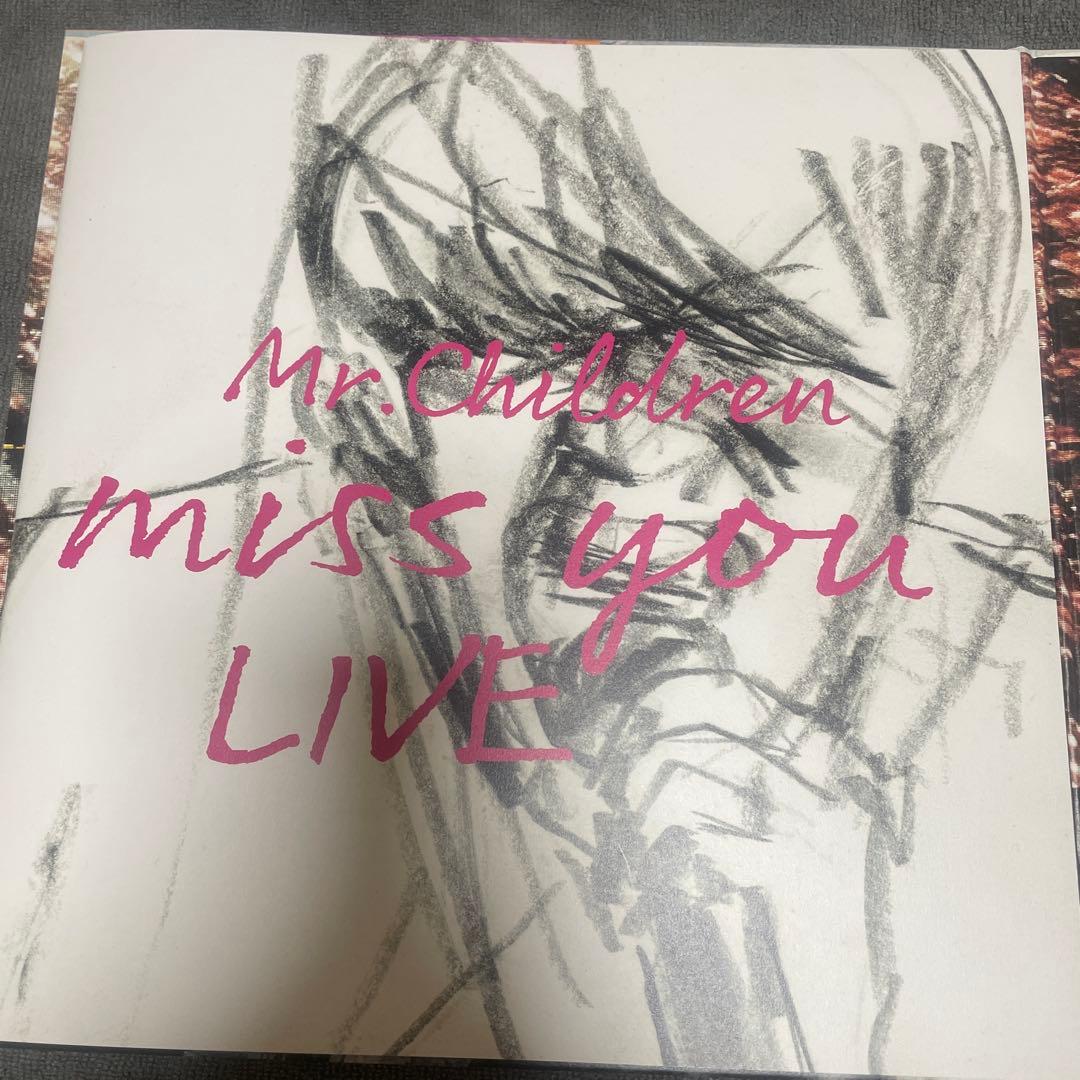 Mr.Children
miss you
LIVE